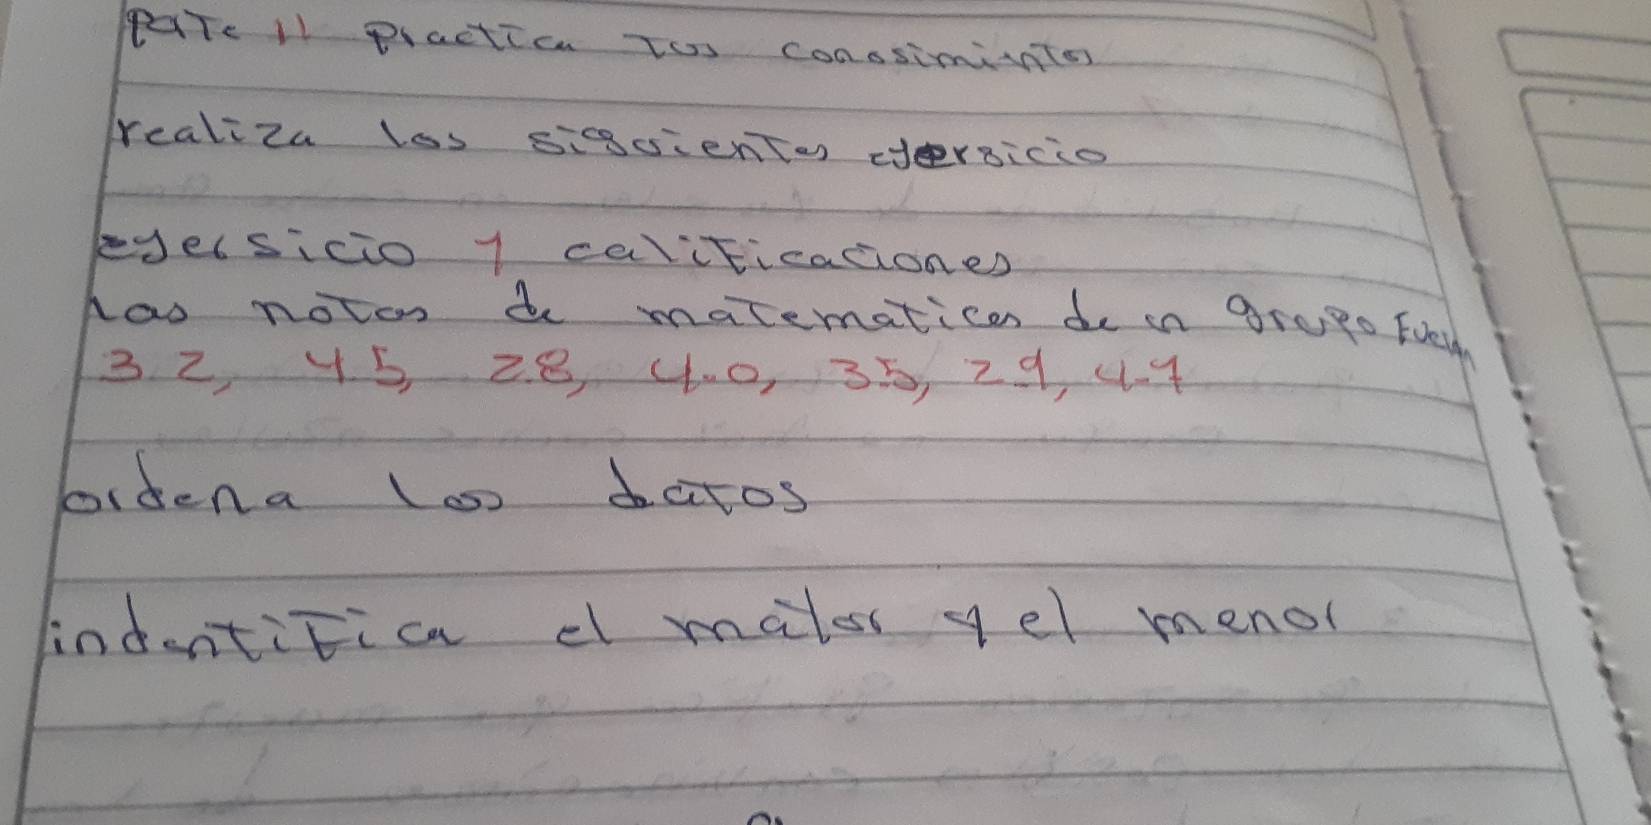 parte 11 practica tus conosimientos
realiza los siguientes ejersicio
ejersicio 1 calificaciones
las notas de matematicas de un grupo Fueron
3.2, 4.5, 2.8, 4.0, 3.5, 2.9, 4.7
ordena los datos
indentifica el maior y el menor